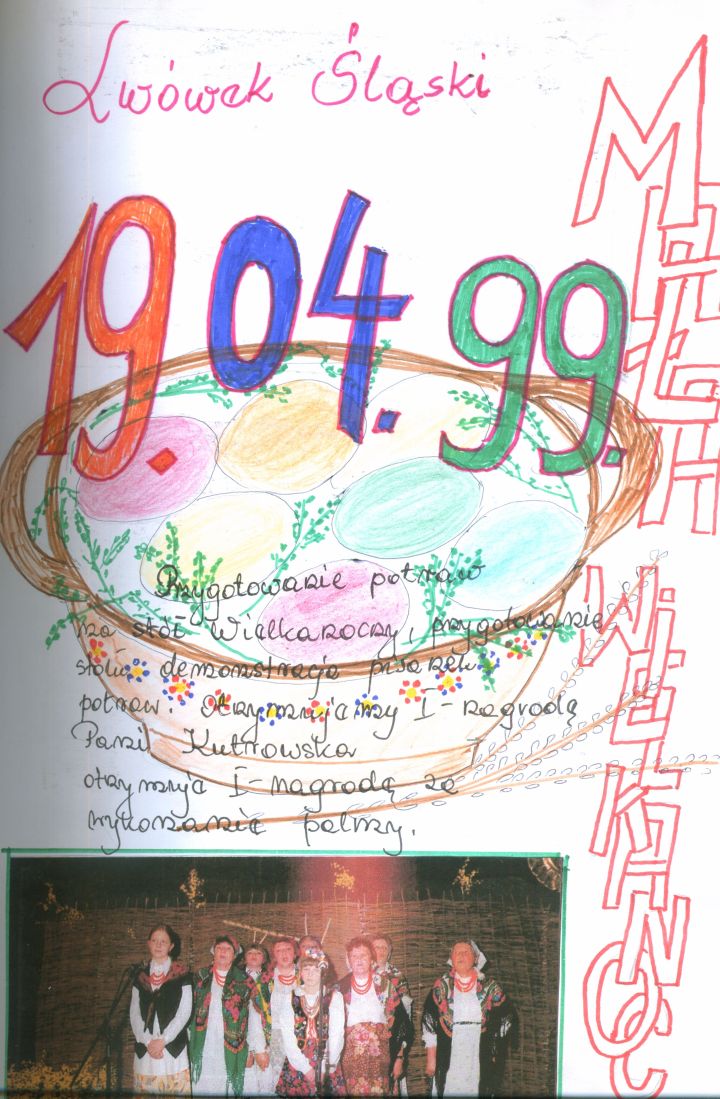 Lwówek Śląski
19.04.99.
Przygotowanie potraw
na stół Wielkanocny, przygotowanie
stołu demonstracja pisanek
potraw. Otrzymujemy I-nagrodę
Pani Kutrowska
otrzymuje I-nagrodę za
wykonanie palmy.
WiELKANOC